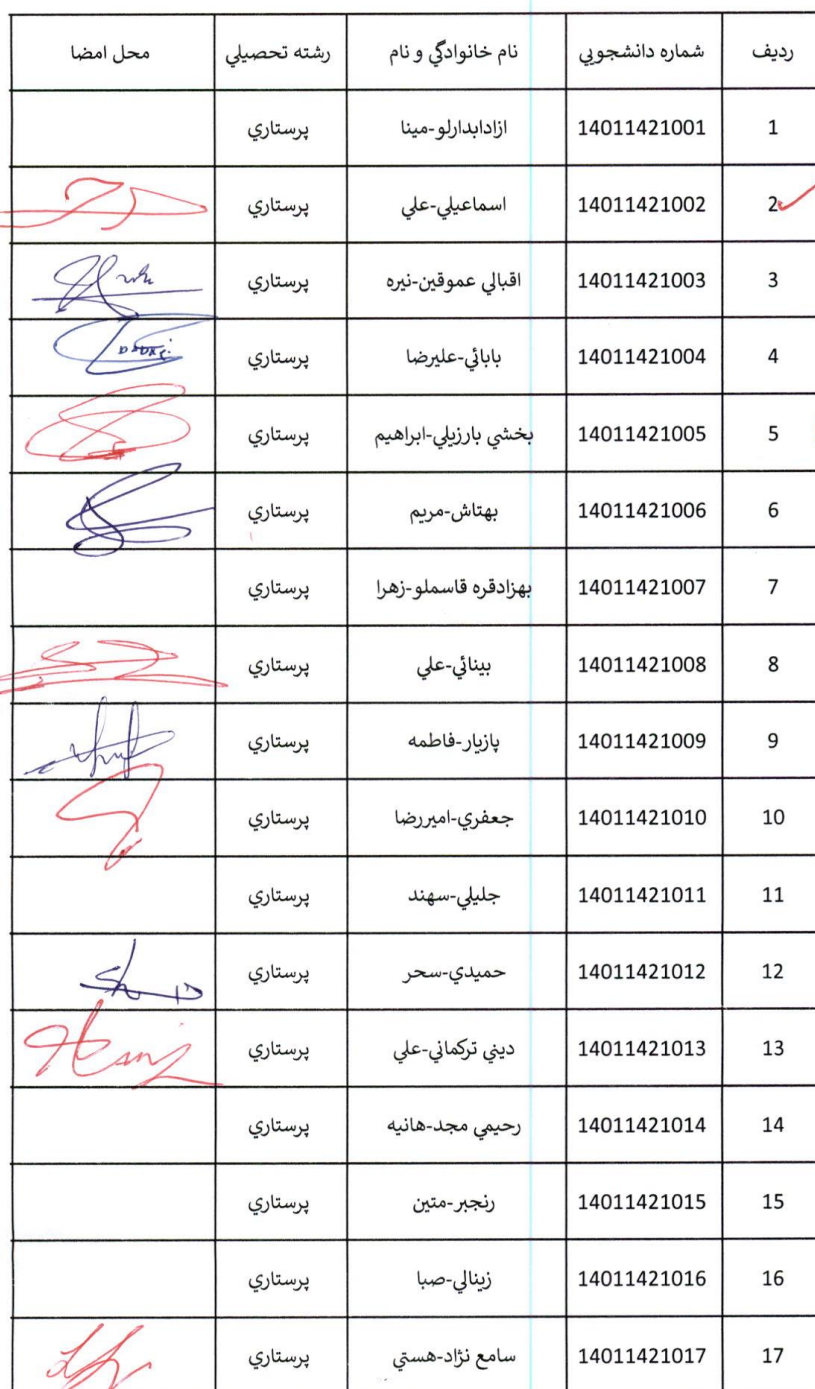 ردیف شماره دانشجويي نام خانوادگي و نام رشته تحصيلي محل امضا
1 14011421001 ازادابدارلو-مينا پرستاري
2 14011421002 اسماعيلي-علي پرستاري
3 14011421003 اقبالي عموقين-نيره پرستاري
4 14011421004 بابائي-عليرضا پرستاري
5 14011421005 بخشي بارزيلي-ابراهيم پرستاري
6 14011421006 بهتاش-مريم پرستاري
7 14011421007 بهزادقره قاسملو-زهرا پرستاري
8 14011421008 بينائي-علي پرستاري
9 14011421009 پازيار-فاطمه پرستاري
10 14011421010 جعفري-اميررضا پرستاري
11 14011421011 جليلي-سهند پرستاري
12 14011421012 حميدي-سحر پرستاري
13 14011421013 ديني تركماني-علي پرستاري
14 14011421014 رحيمي مجد-هانيه پرستاري
15 14011421015 رنجبر-متين پرستاري
16 14011421016 زينالي-صبا پرستاري
17 14011421017 سامع نژاد-هستي پرستاري